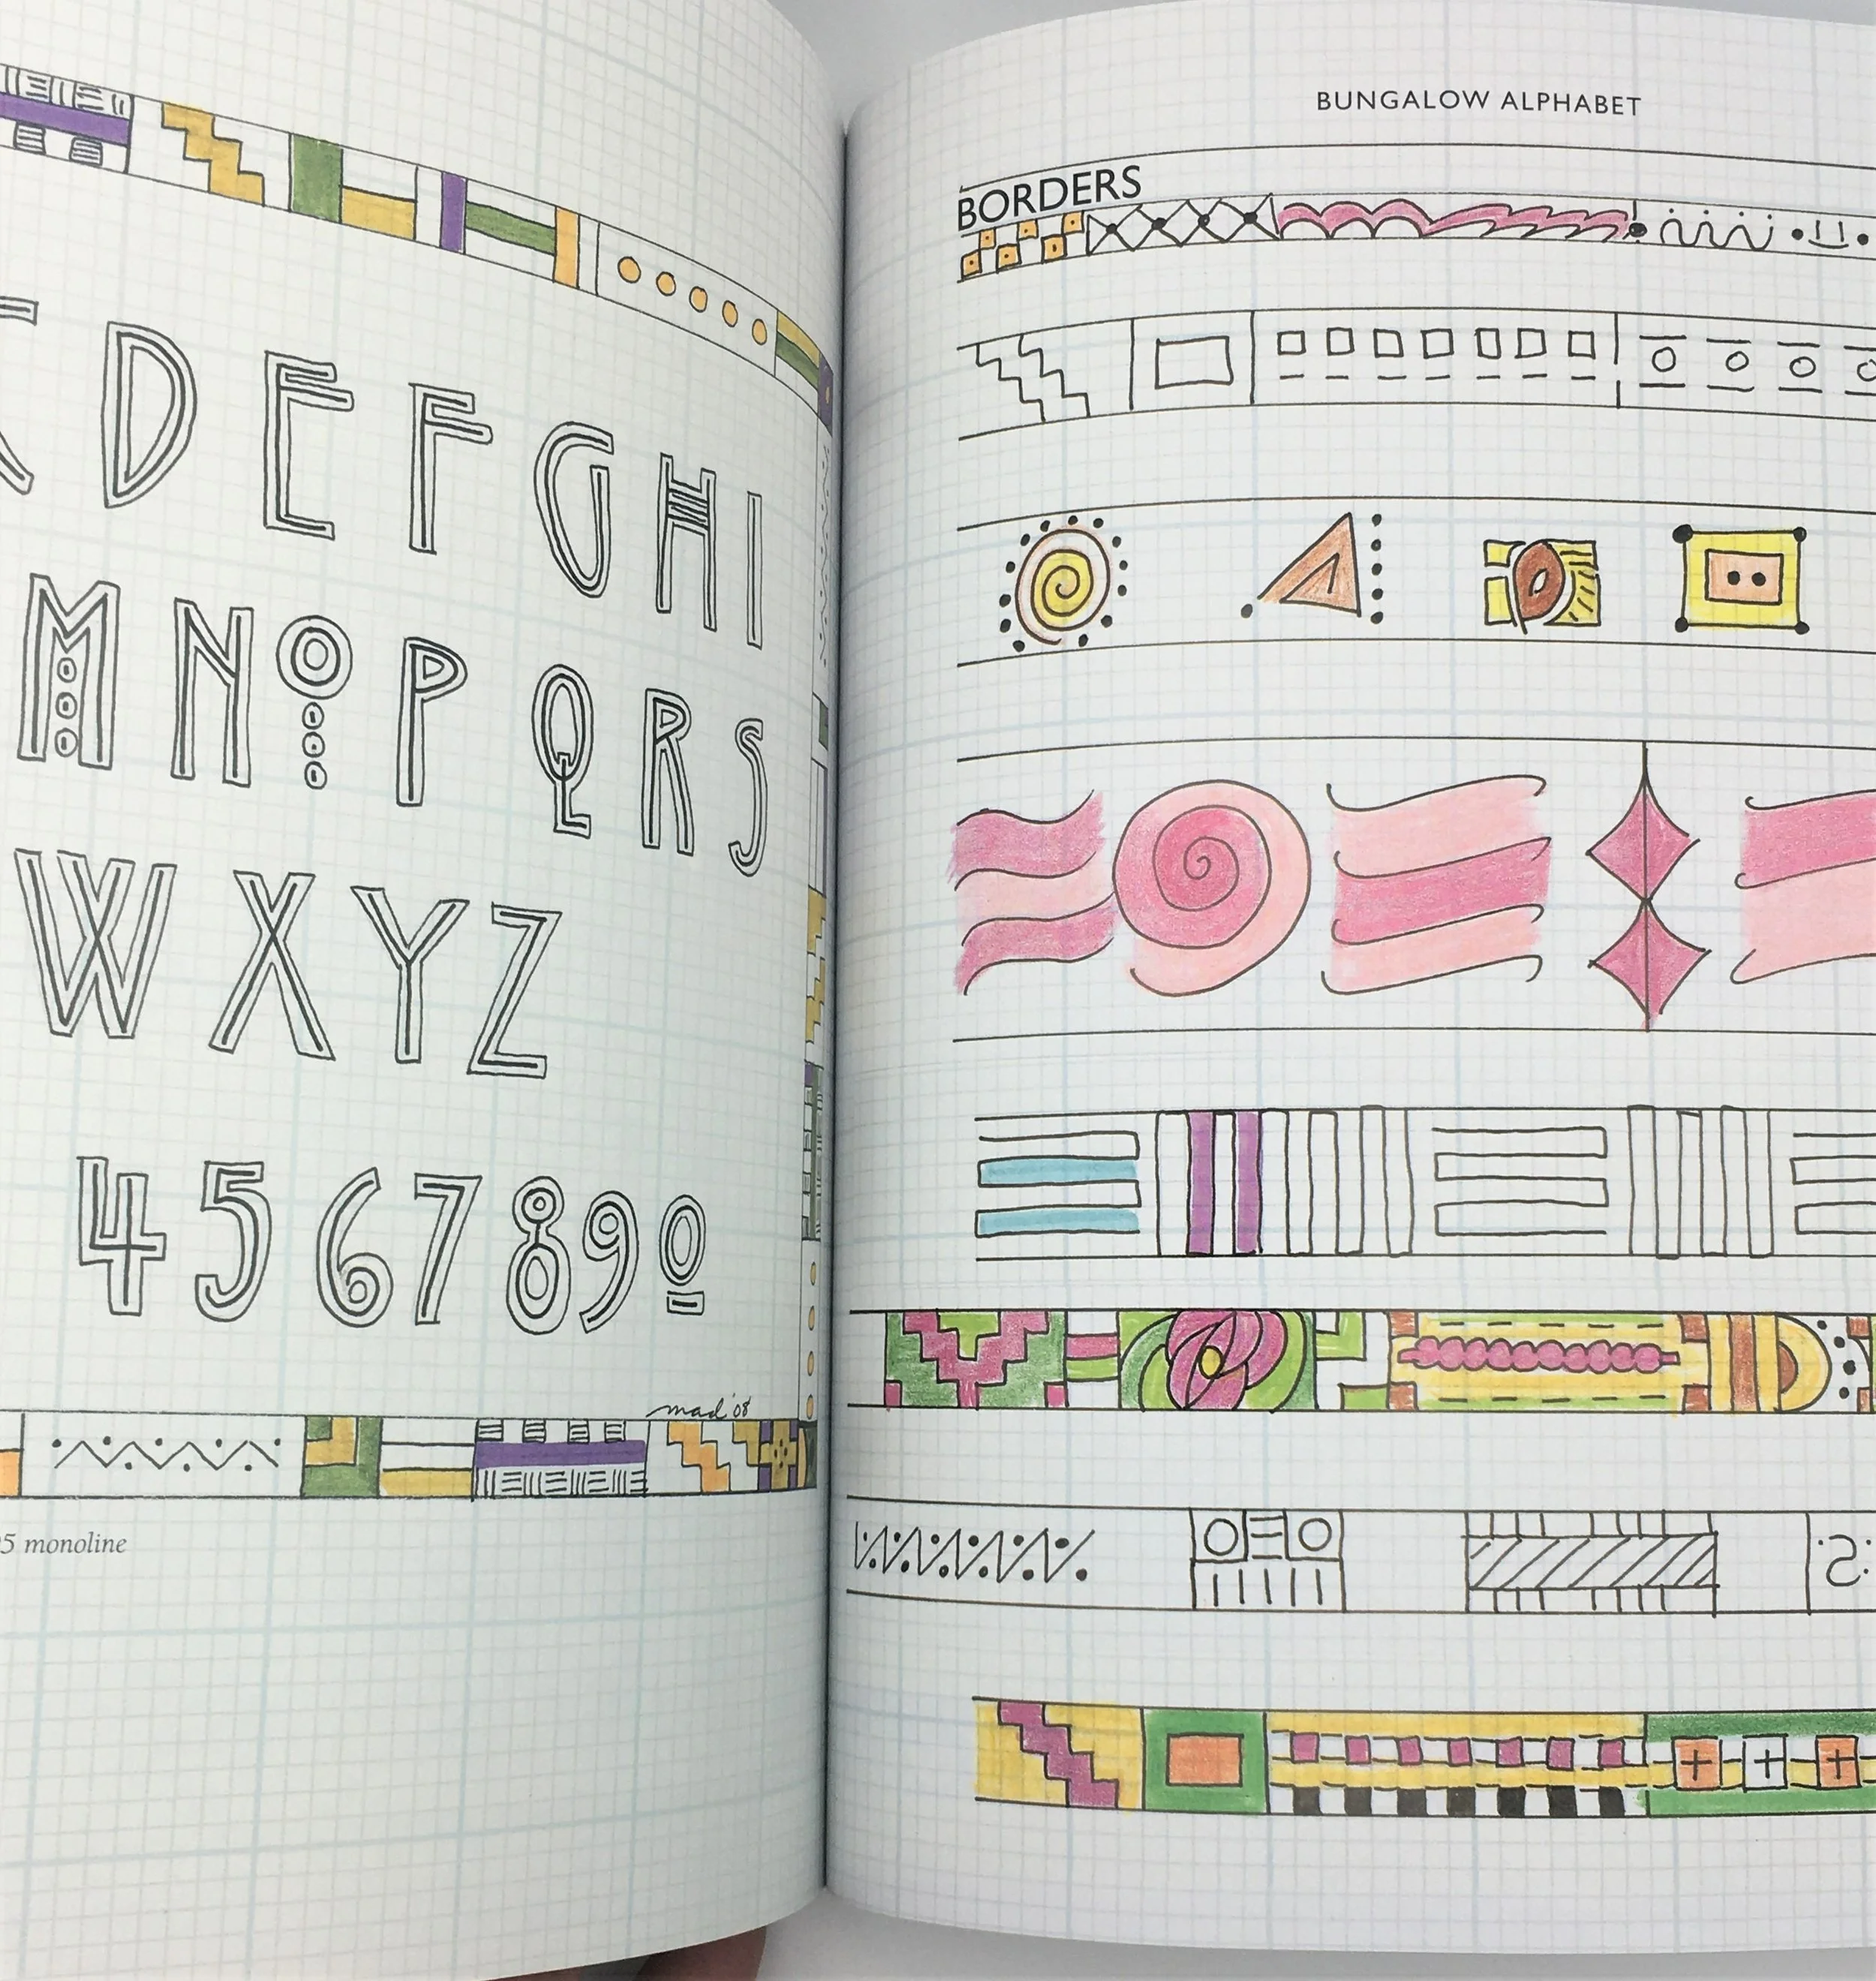 C D E F G H I
M N O P Q R S
W X Y Z
4 5 6 7 8 9 0
mad '08
5 monoline
BUNGALOW ALPHABET
BORDERS